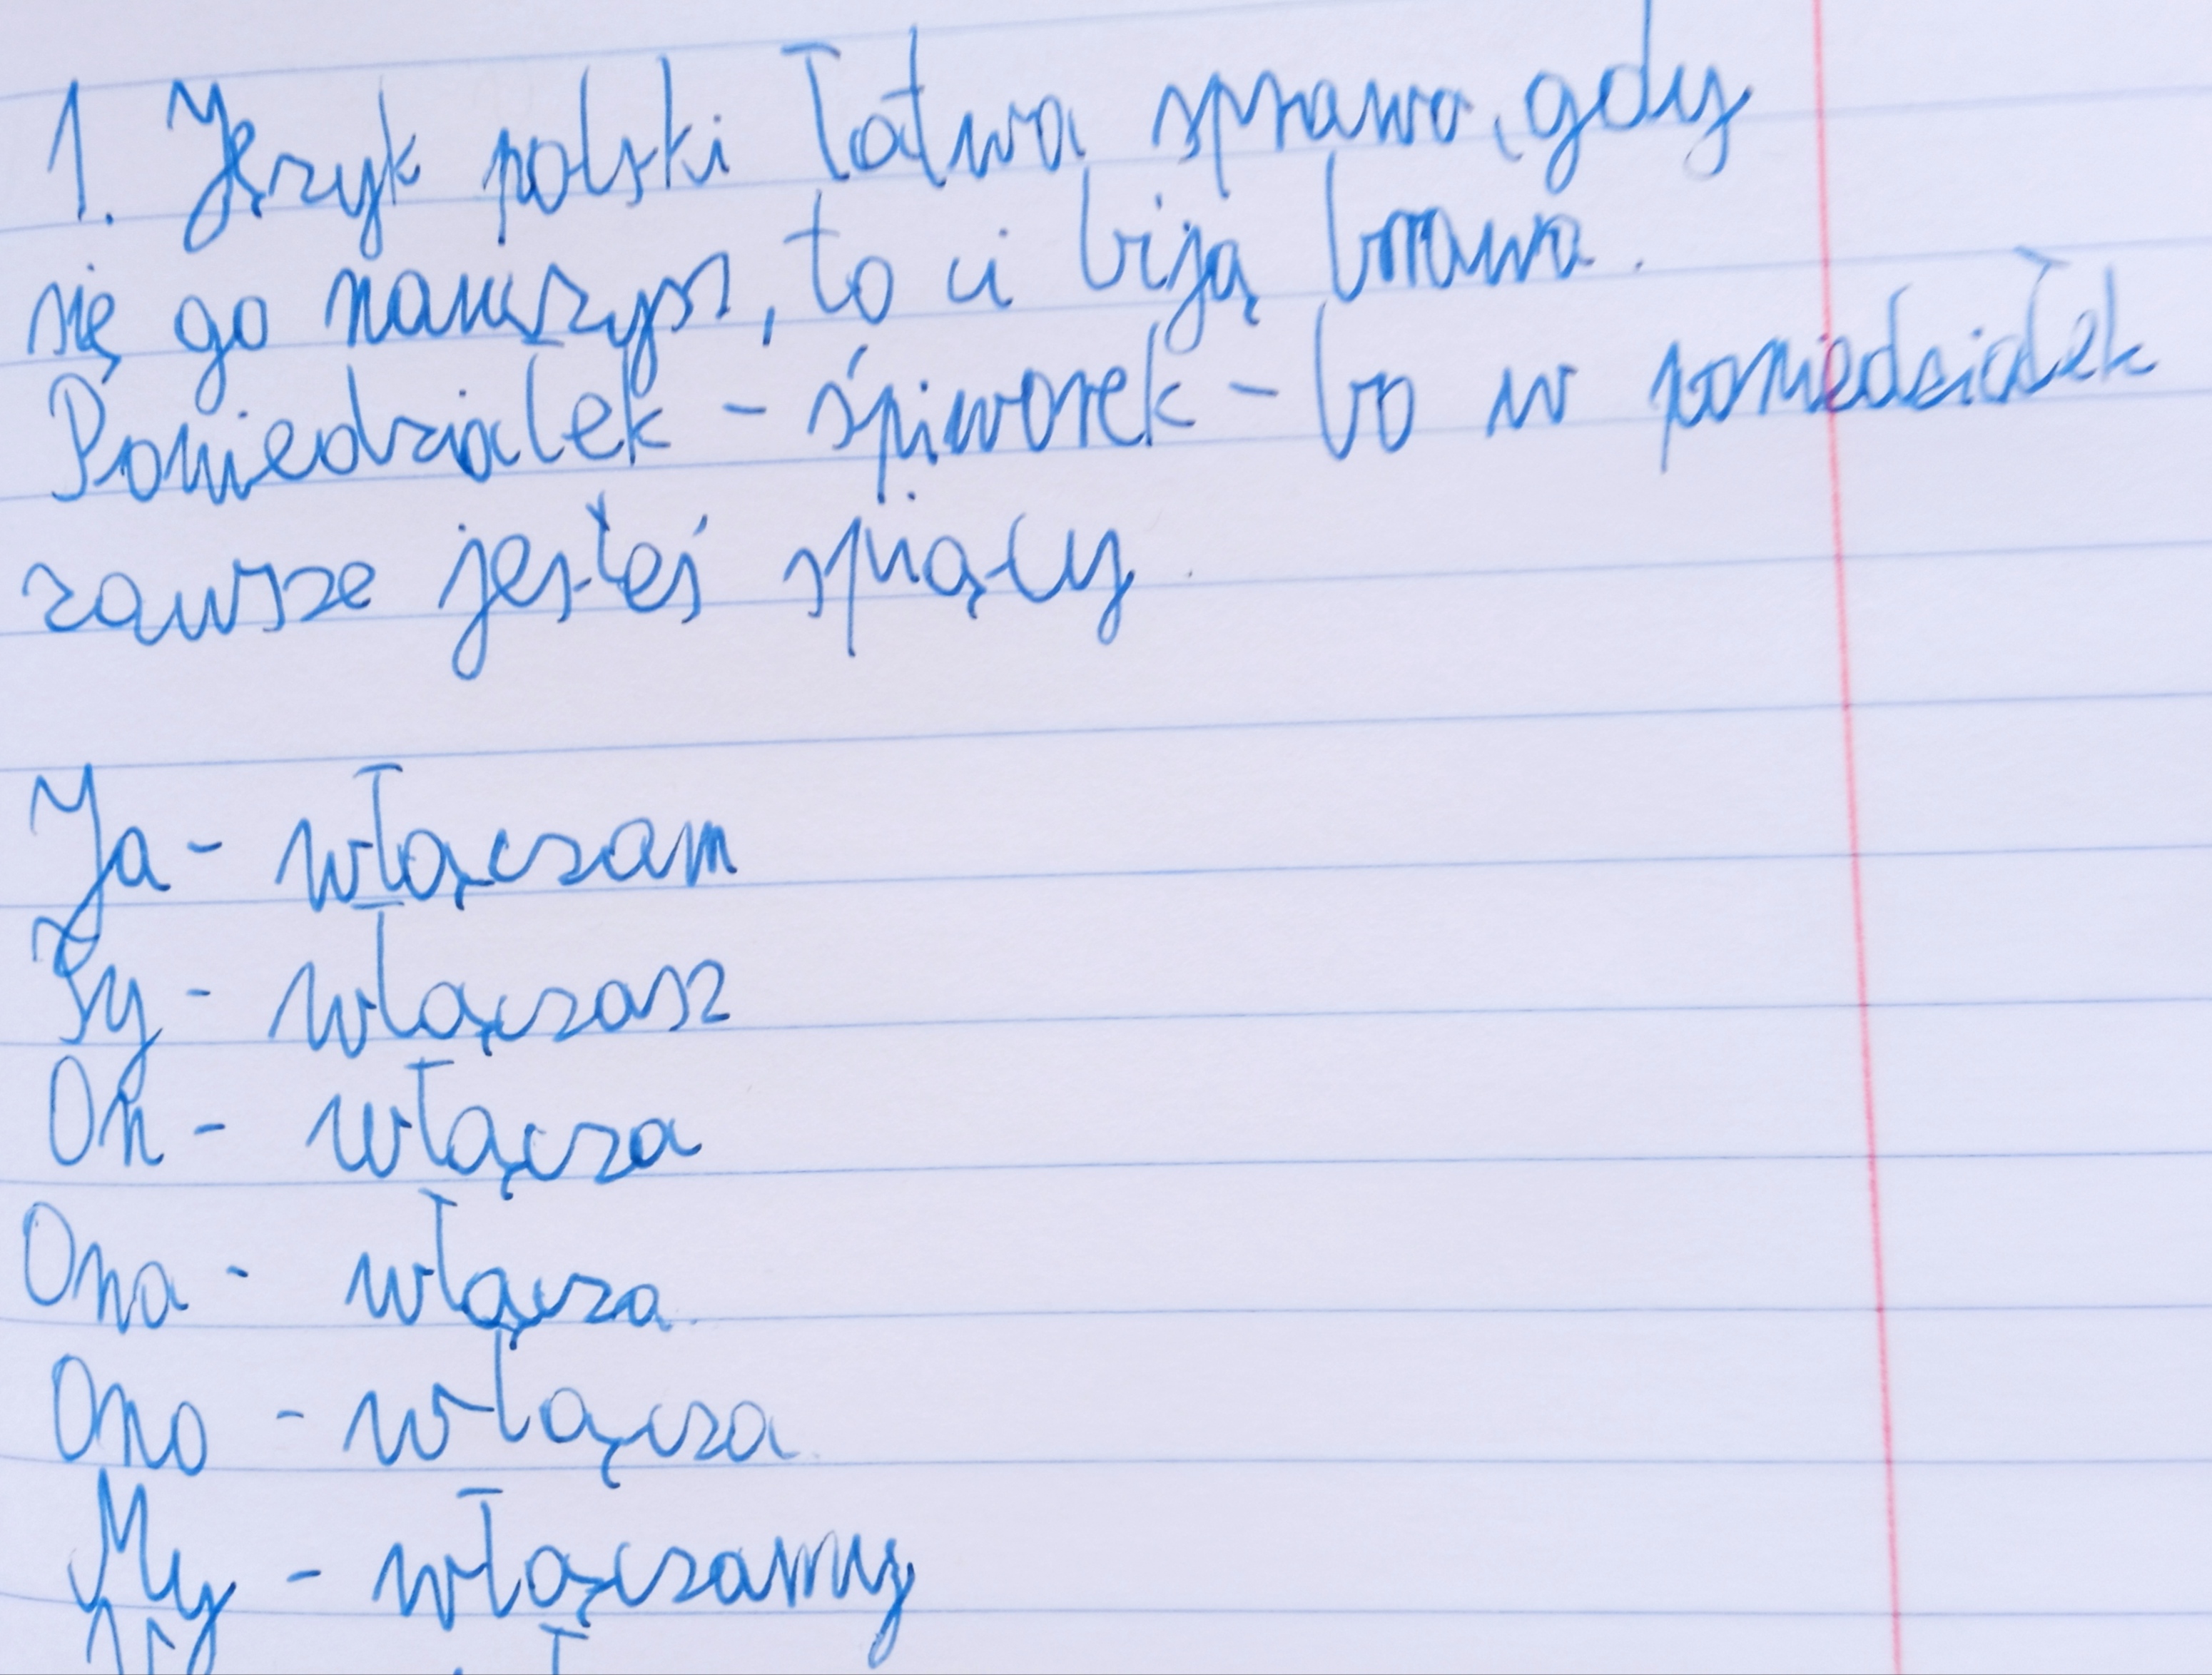 1. Język polski łatwa sprawa, gdy
się go nauczysz, to ci biją brawa.
Poniedziałek - śpiworek - bo w poniedziałek
zawsze jesteś śpiący.
Ja - włączam
Ty - włączasz
On - włącza
Ona - włącza
Ono - włącza
My - włączamy